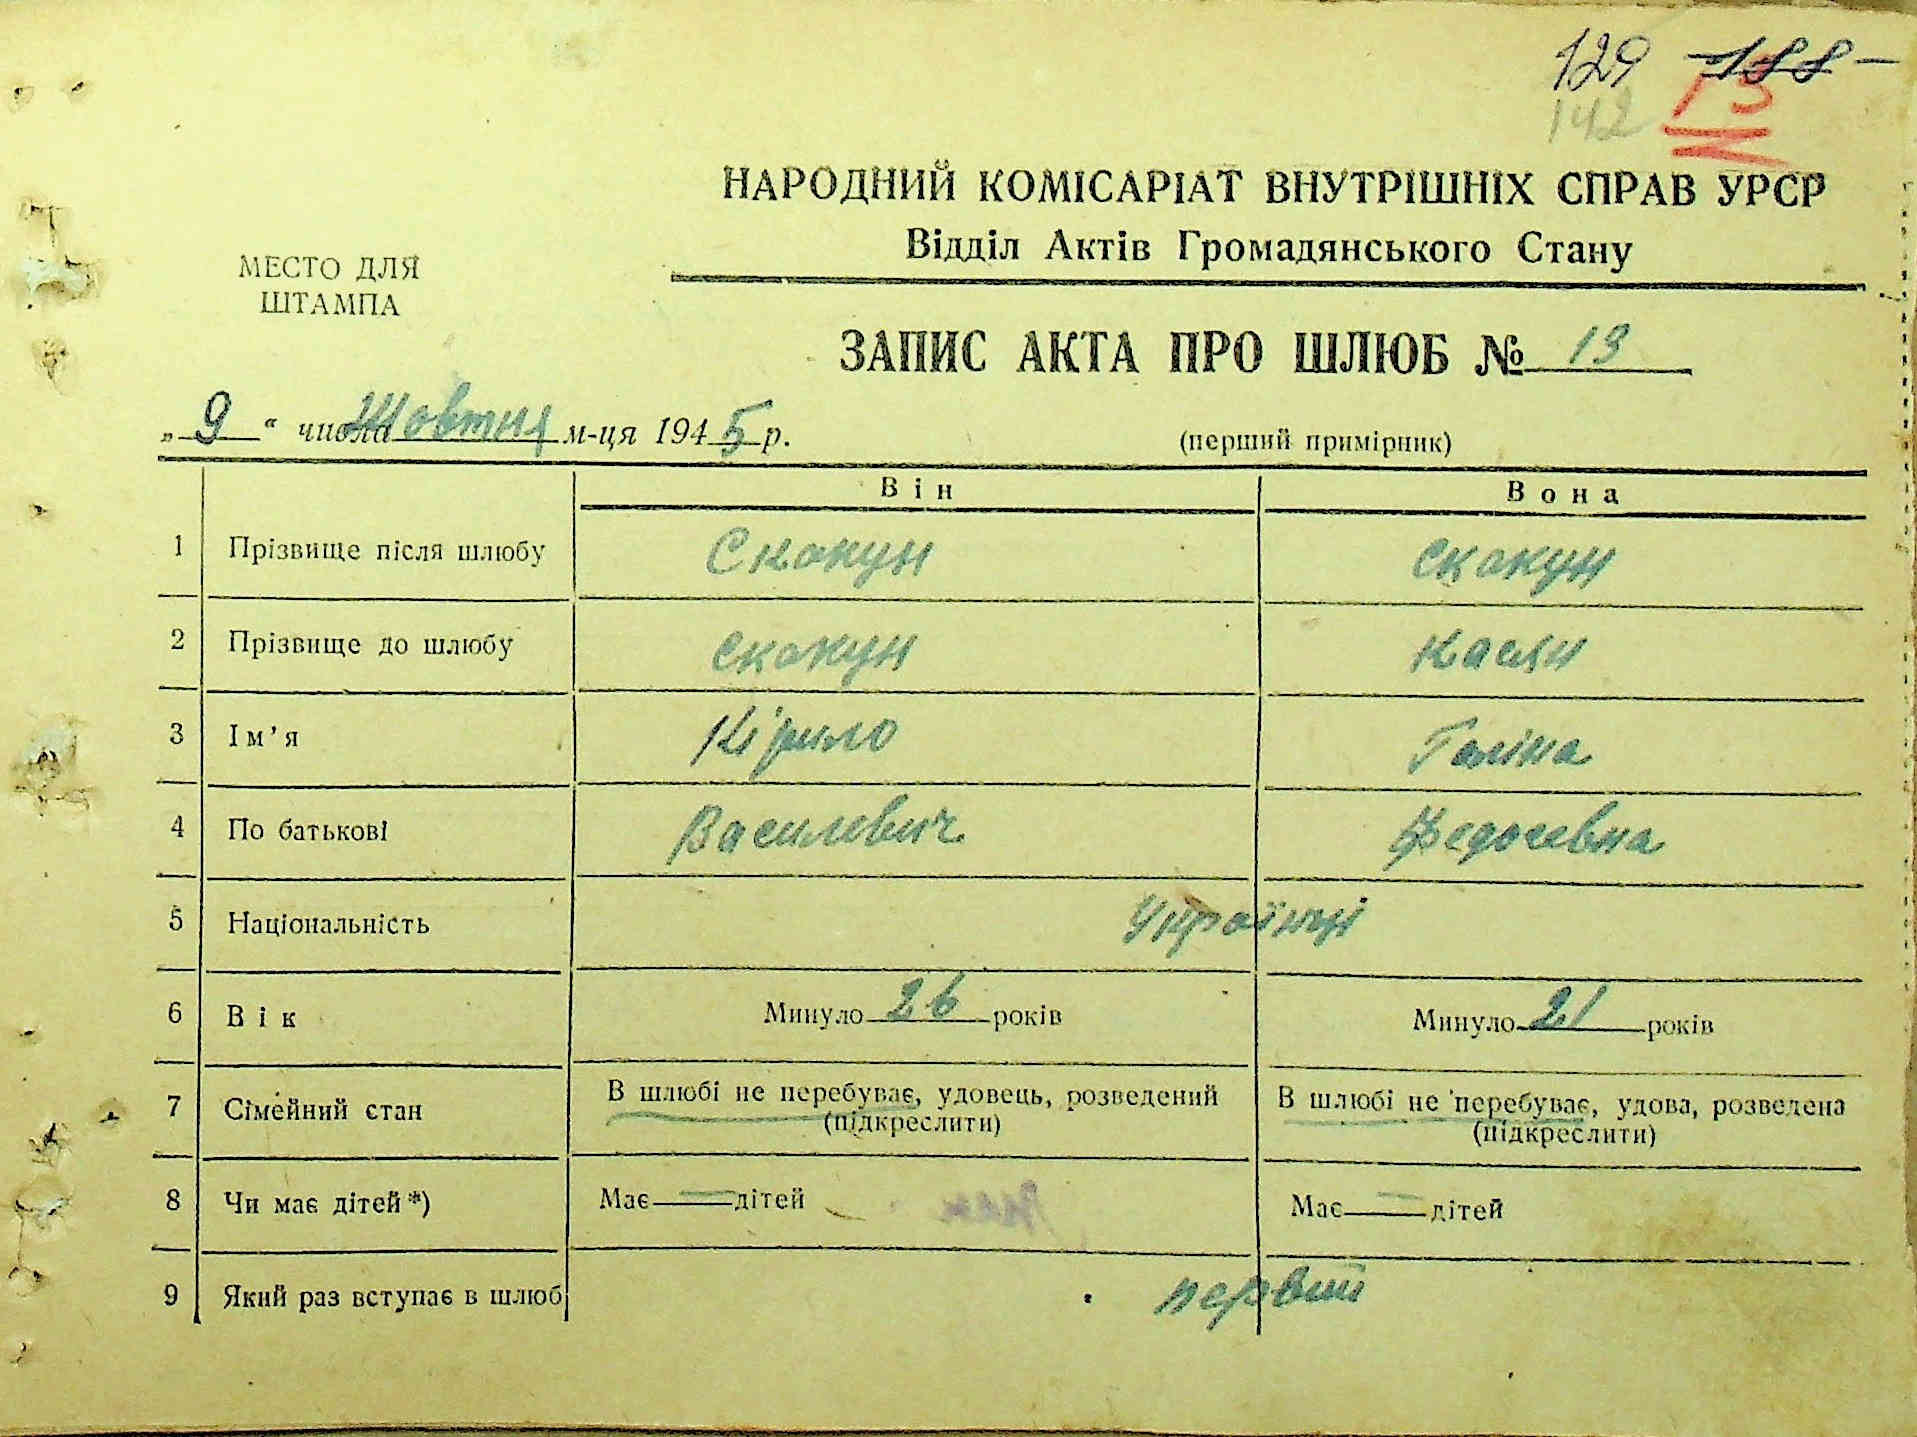 129 188
142 13
НАРОДНИЙ КОМІСАРІАТ ВНУТРІШНІХ СПРАВ УРСР
Відділ Актів Громадянського Стану
МЕСТО ДЛЯ
ШТАМПА
ЗАПИС АКТА ПРО ШЛЮБ № 13
„ 9 “ числа Жовтня м-ця 1945 р.
(перший примірник)
Він Вона
1 Прізвище після шлюбу Скакун скакун
2 Прізвище до шлюбу скакун
3 Ім’я Кірило Галіна
4 По батькові Василевич Федосевна
5 Національність Українці
6 Вік Минуло 26 років Минуло 21 років
7 Сімейний стан В шлюбі не перебуває, удовець, розведений В шлюбі не перебуває, удова, розведена
(підкреслити) (підкреслити)
8 Чи має дітей*) Має — дітей Має — дітей
9 Який раз вступає в шлюб первий